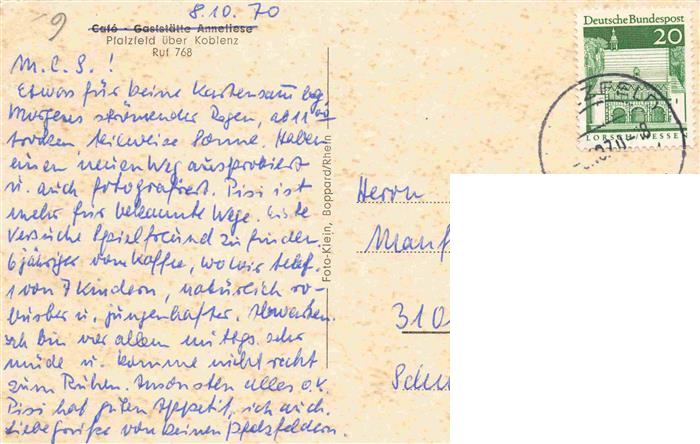 9
8.10.70
Café - Gaststätte Anneliese
Pfalzfeld über Koblenz
Ruf 768
M. L. S. !
Etwas für deine Kartensammlg.
Morgens strömender Regen, ab 11 Uhr
trocken, teilweise Sonne. Haben
einen neuen Weg ausprobiert
u. auch fotografiert. Pisi ist
mehr für bekannte Wege. Erste
Versuche Spielfreund zu finden.
6 jähriger vom Kaffee, wo wir telef.
1 von 7 Kindern, natürlich ro-
buster u. jungenhafter. Abwarten.
Ich bin vor allem mittgs. sehr
müde u. komme nicht recht
zum Ruhen. Ansonsten alles o.k.
Pisi hat guten Appetit, ich auch.
Liebe Grüße von deinen Pfalzfeldern.
Foto-Klein, Boppard/Rhein
Deutsche Bundespost
20
LORSCH/HESSEN
Herrn
Manf
310